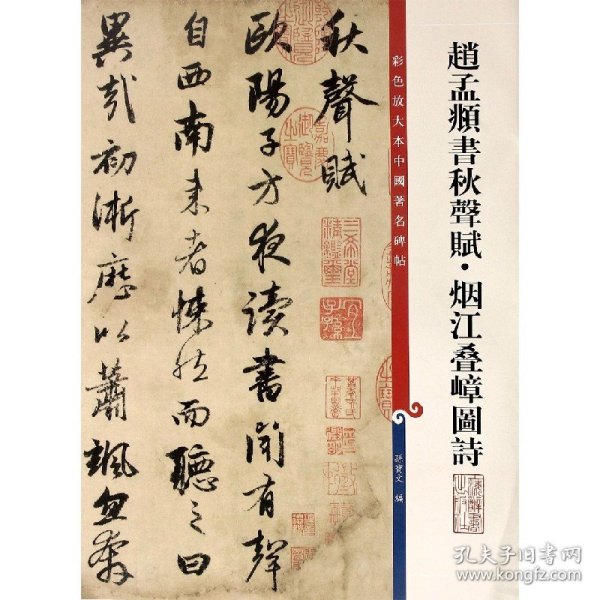 趙孟頫書秋聲賦·烟江叠嶂圖詩
彩色放大本中國著名碑帖
孫寶文 編
秋聲賦
歐陽子方夜讀書聞有聲
自西南來者悚然而聽之曰
異哉初淅瀝以蕭颯忽奔
孔夫子旧书网
www.kongfz.com